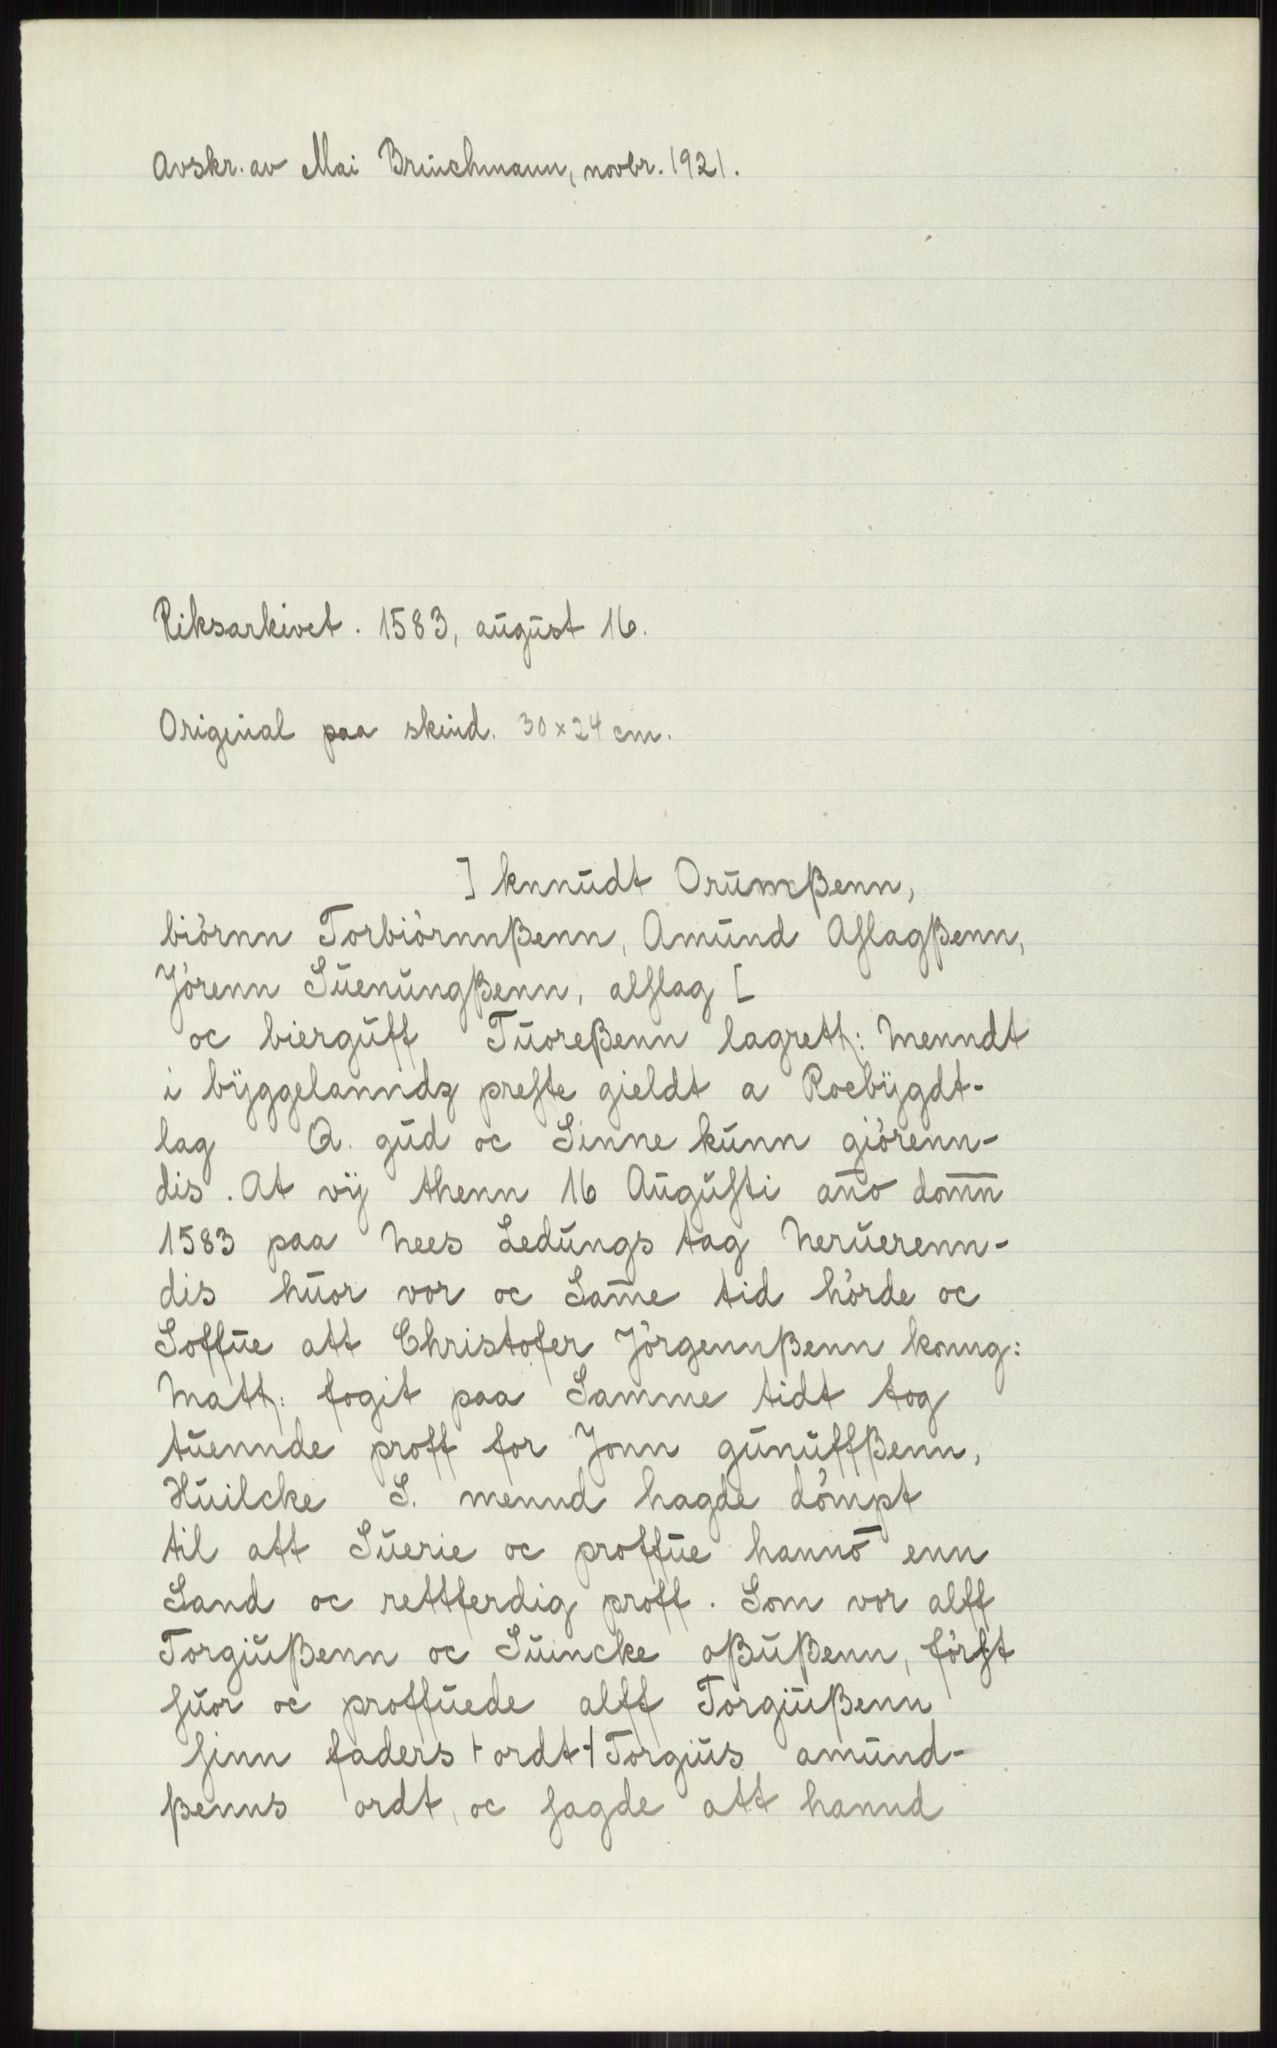 Avskr. av Mai Bruchmann, novbr. 1921.
Riksarkivet. 1583, august 16.
Original paa skind. 30 × 24 cm.
] knnudt Orumßenn,
biörnn Torbiörnnßenn, Amund Aslagßenn,
Jörenn Suenungßenn, alslag [
oc bierguff Tuoreßenn lagrett: menndt
i byggelanndz preste gieldt a Roebygdt-
lag A. gud oc Sinne kunn giörenn-
dis. At vij thenn 16 Augusti ano domn
1583 paa Nees Ledungs tag neruerenn-
dis huor vor oc Same tid hörde oc
Soffue att Christofer Jörgennßenn konng:
Matt: fogit paa Samme tidt tog
tuennde proff for Jonn gunuffßenn,
Huilcke S. mennd hagde dömpt
til att Suerie oc proffue hanno enn
Sand oc rettferdig proff. Som vor alff
Torgiußenn oc Suincke oßußenn, först
suor oc proffuede alff Torgiußenn
sinn faders ⊦ ordt ⊣ Torgius amund-
ßenns ordt, oc sagde att hannd